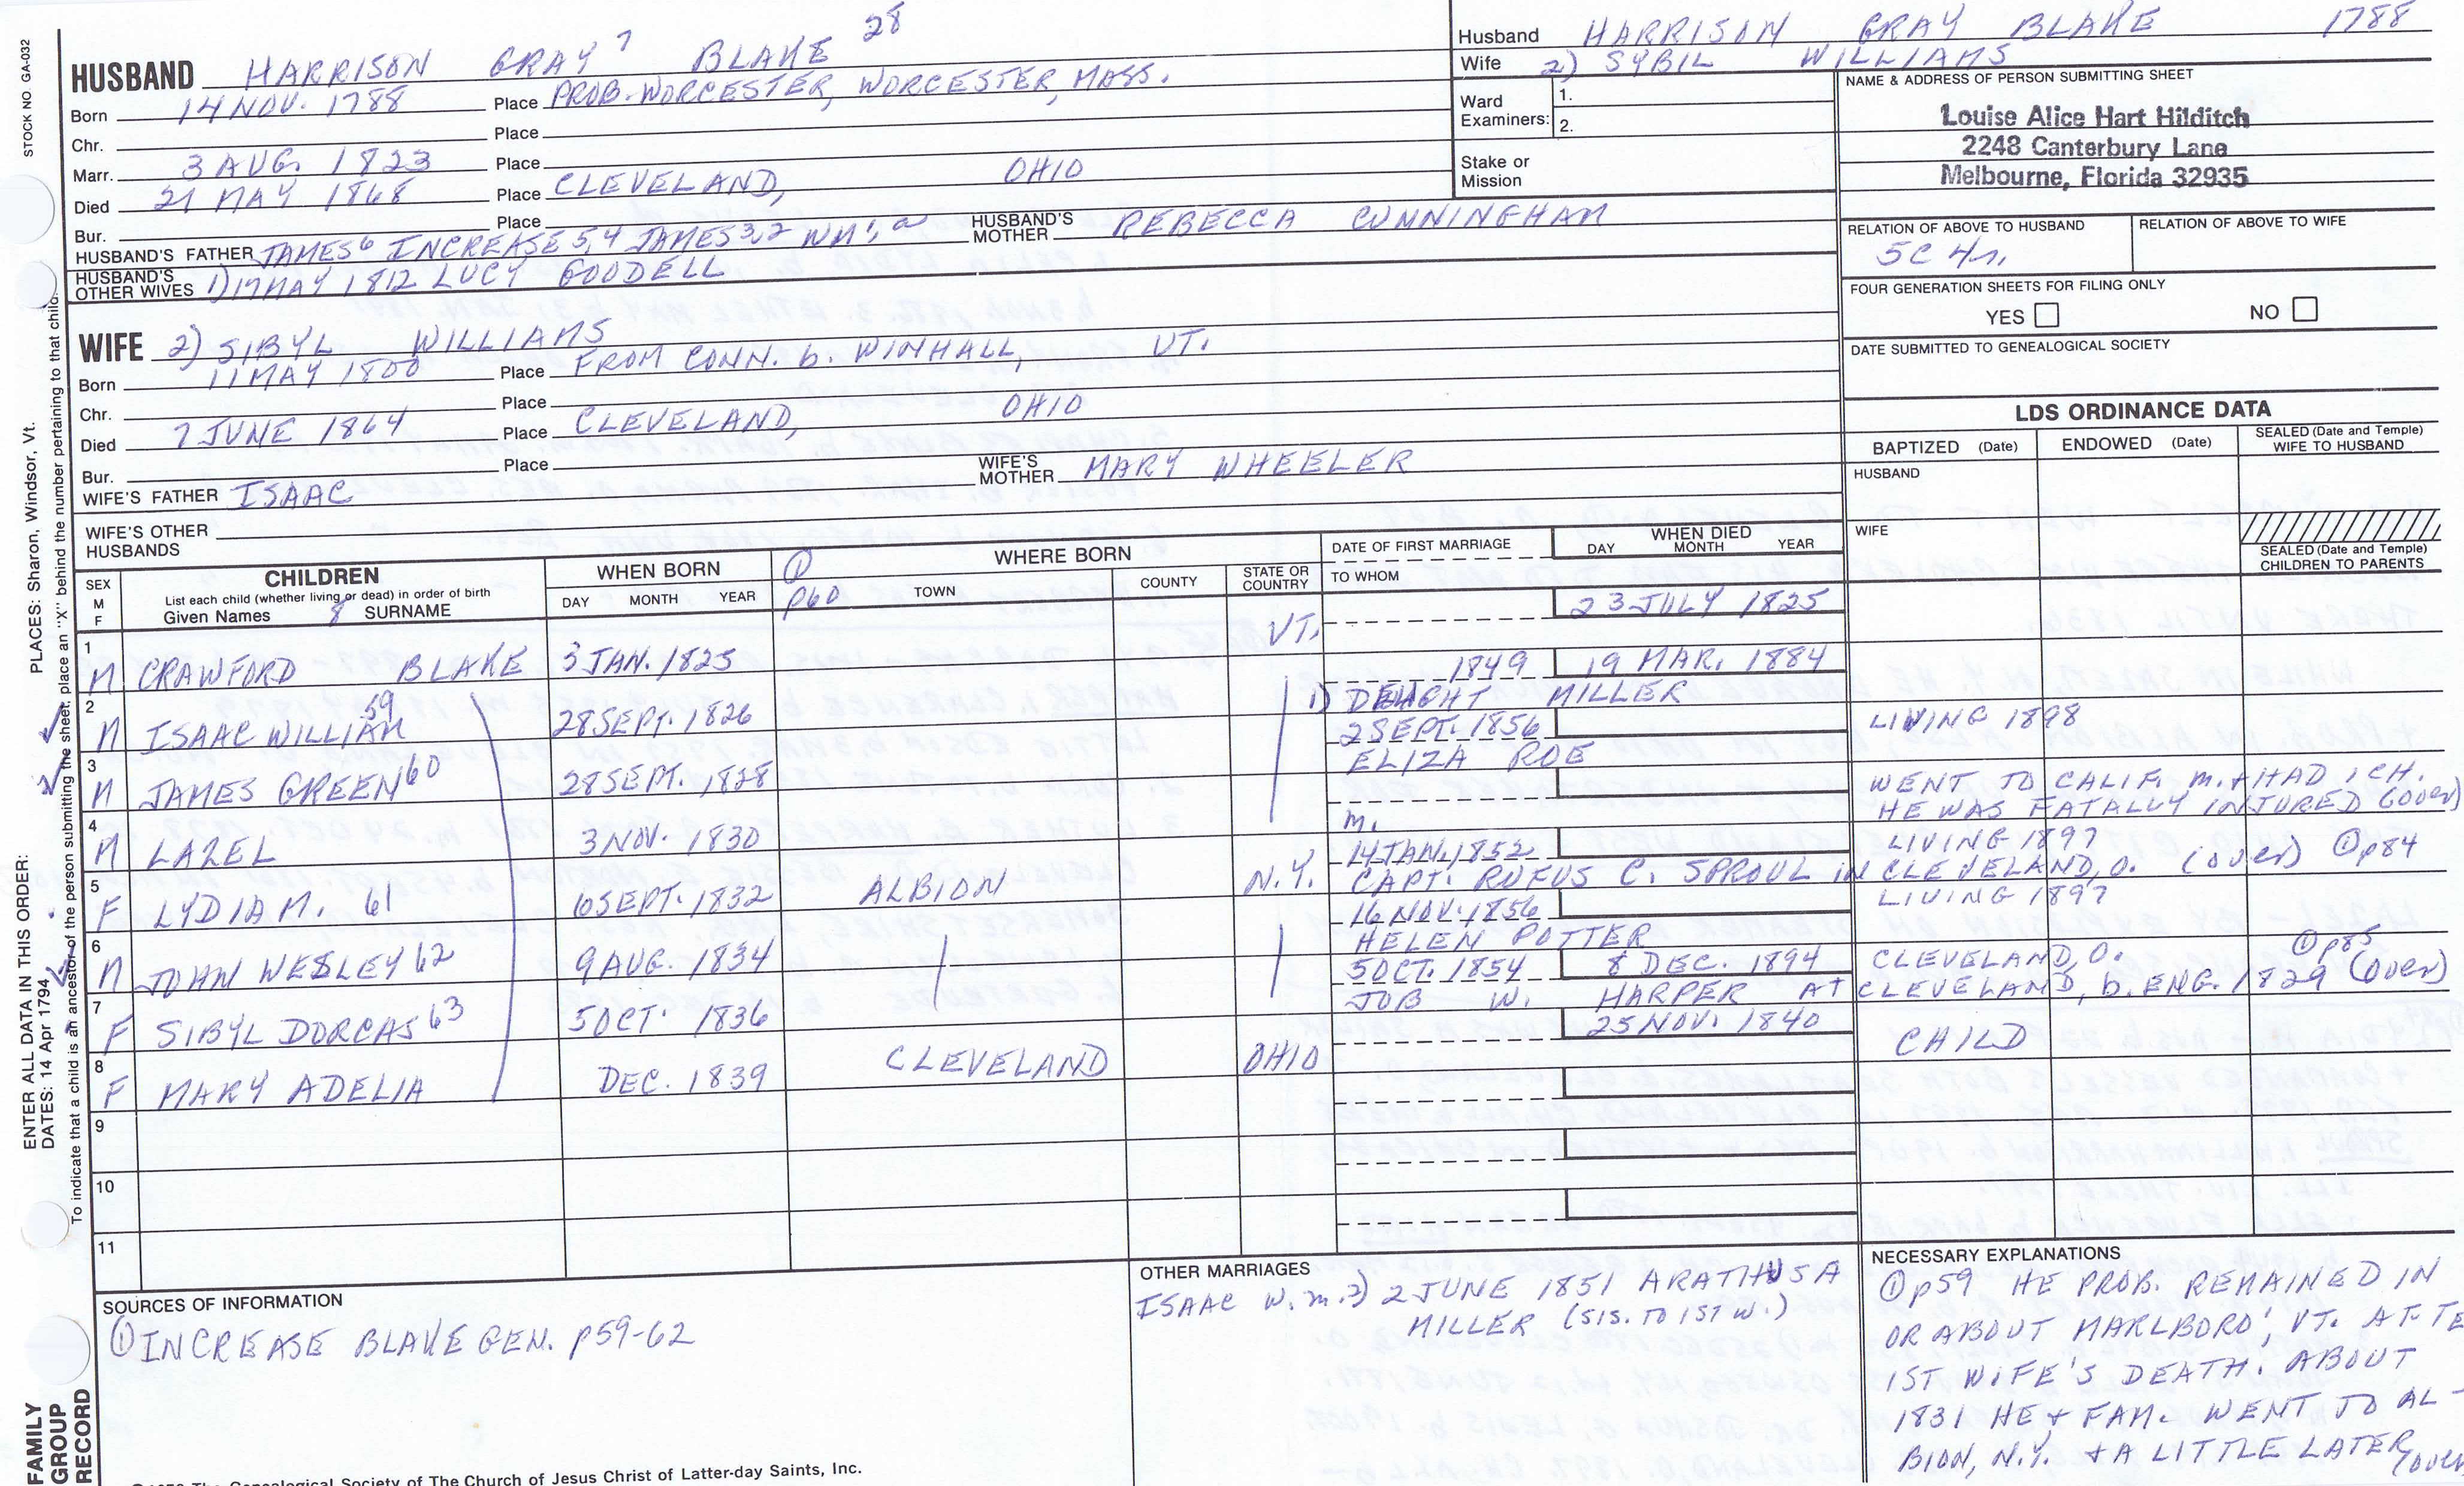 STOCK NO GA-032
PLACES: Sharon, Windsor, Vt.
ENTER ALL DATA IN THIS ORDER:
DATES: 14 Apr 1794
To indicate that a child is an ancestor of the person submitting the sheet, place an "X" behind the number pertaining to that child.
FAMILY
GROUP
RECORD
HUSBAND HARRISON GRAY 7 BLAKE 28
Born 14 NOV. 1788 Place PROB. WORCESTER, WORCESTER, MASS.
Chr. Place
Marr. 3 AUG. 1823 Place
Died 21 MAY 1868 Place CLEVELAND, OHIO
Bur. Place
HUSBAND'S FATHER JAMES 6 INCREASE 5,4 JAMES 3,2 WM 1, HUSBAND'S MOTHER REBECCA CUNNINGHAM
HUSBAND'S OTHER WIVES 1) 17 MAY 1812 LUCY GOODELL
WIFE 2) SIBYL WILLIAMS
Born 11 MAY 1800 Place FROM CONN. b. WINHALL, VT.
Chr. Place
Died 7 JUNE 1864 Place CLEVELAND, OHIO
Bur. Place
WIFE'S FATHER ISAAC WIFE'S MOTHER MARY WHEELER
WIFE'S OTHER HUSBANDS
Husband HARRISON GRAY BLAKE 1788
Wife 2) SYBIL WILLIAMS
Ward Examiners: 1.
2.
Stake or Mission
NAME & ADDRESS OF PERSON SUBMITTING SHEET
Louise Alice Hart Hilditch
2248 Canterbury Lane
Melbourne, Florida 32935
RELATION OF ABOVE TO HUSBAND RELATION OF ABOVE TO WIFE
5C 4r.
FOUR GENERATION SHEETS FOR FILING ONLY
YES NO
DATE SUBMITTED TO GENEALOGICAL SOCIETY
LDS ORDINANCE DATA
BAPTIZED (Date) ENDOWED (Date) SEALED (Date and Temple) WIFE TO HUSBAND
HUSBAND
WIFE
SEALED (Date and Temple) CHILDREN TO PARENTS
SEX M F
CHILDREN
List each child (whether living or dead) in order of birth
Given Names 8 SURNAME
WHEN BORN
DAY MONTH YEAR
① p60
WHERE BORN
TOWN COUNTY STATE OR COUNTRY
DATE OF FIRST MARRIAGE
TO WHOM
WHEN DIED
DAY MONTH YEAR
1 M CRAWFORD BLAKE 3 JAN. 1825 VT. 23 JULY 1825
2 M ISAAC WILLIAM 59 28 SEPT. 1826 1849 19 MAR. 1884
1) MILLER
3 M JAMES GREEN 60 28 SEPT. 1828 2 SEPT. 1856 LIVING 1898
ELIZA ROE
4 M LAZEL 3 NOV. 1830 m. WENT TO CALIF. M. + HAD 1 CH.
HE WAS FATALLY INJURED (over)
5 F LYDIA M. 61 10 SEPT. 1832 ALBION N.Y. 14 JAN. 1852 LIVING 1897
CAPT. RUFUS C. SPROUL in CLEVELAND, O. (over) ① p84
6 M JOHN WESLEY 62 9 AUG. 1834 16 NOV. 1856 LIVING 1897
HELEN POTTER
7 F SIBYL DORCAS 63 5 OCT. 1836 5 OCT. 1854 8 DEC. 1894 CLEVELAND, O. ① p85
JOB W. HARPER AT CLEVELAND, b. ENG. 1829 (over)
8 F MARY ADELIA DEC. 1839 CLEVELAND OHIO 25 NOV. 1840 CHILD
9
10
11
SOURCES OF INFORMATION
① INCREASE BLAKE GEN. p59-62
OTHER MARRIAGES
ISAAC W. m. 2) 2 JUNE 1851 ARATHUSA
MILLER (SIS. TO 1ST W.)
NECESSARY EXPLANATIONS
① p59 HE PROB. REMAINED IN
OR ABOUT MARLBORO, VT. AFTE
1ST WIFE'S DEATH. ABOUT
1831 HE + FAM. WENT TO AL-
BION, N.Y. + A LITTLE LATER (over
The Genealogical Society of The Church of Jesus Christ of Latter-day Saints, Inc.